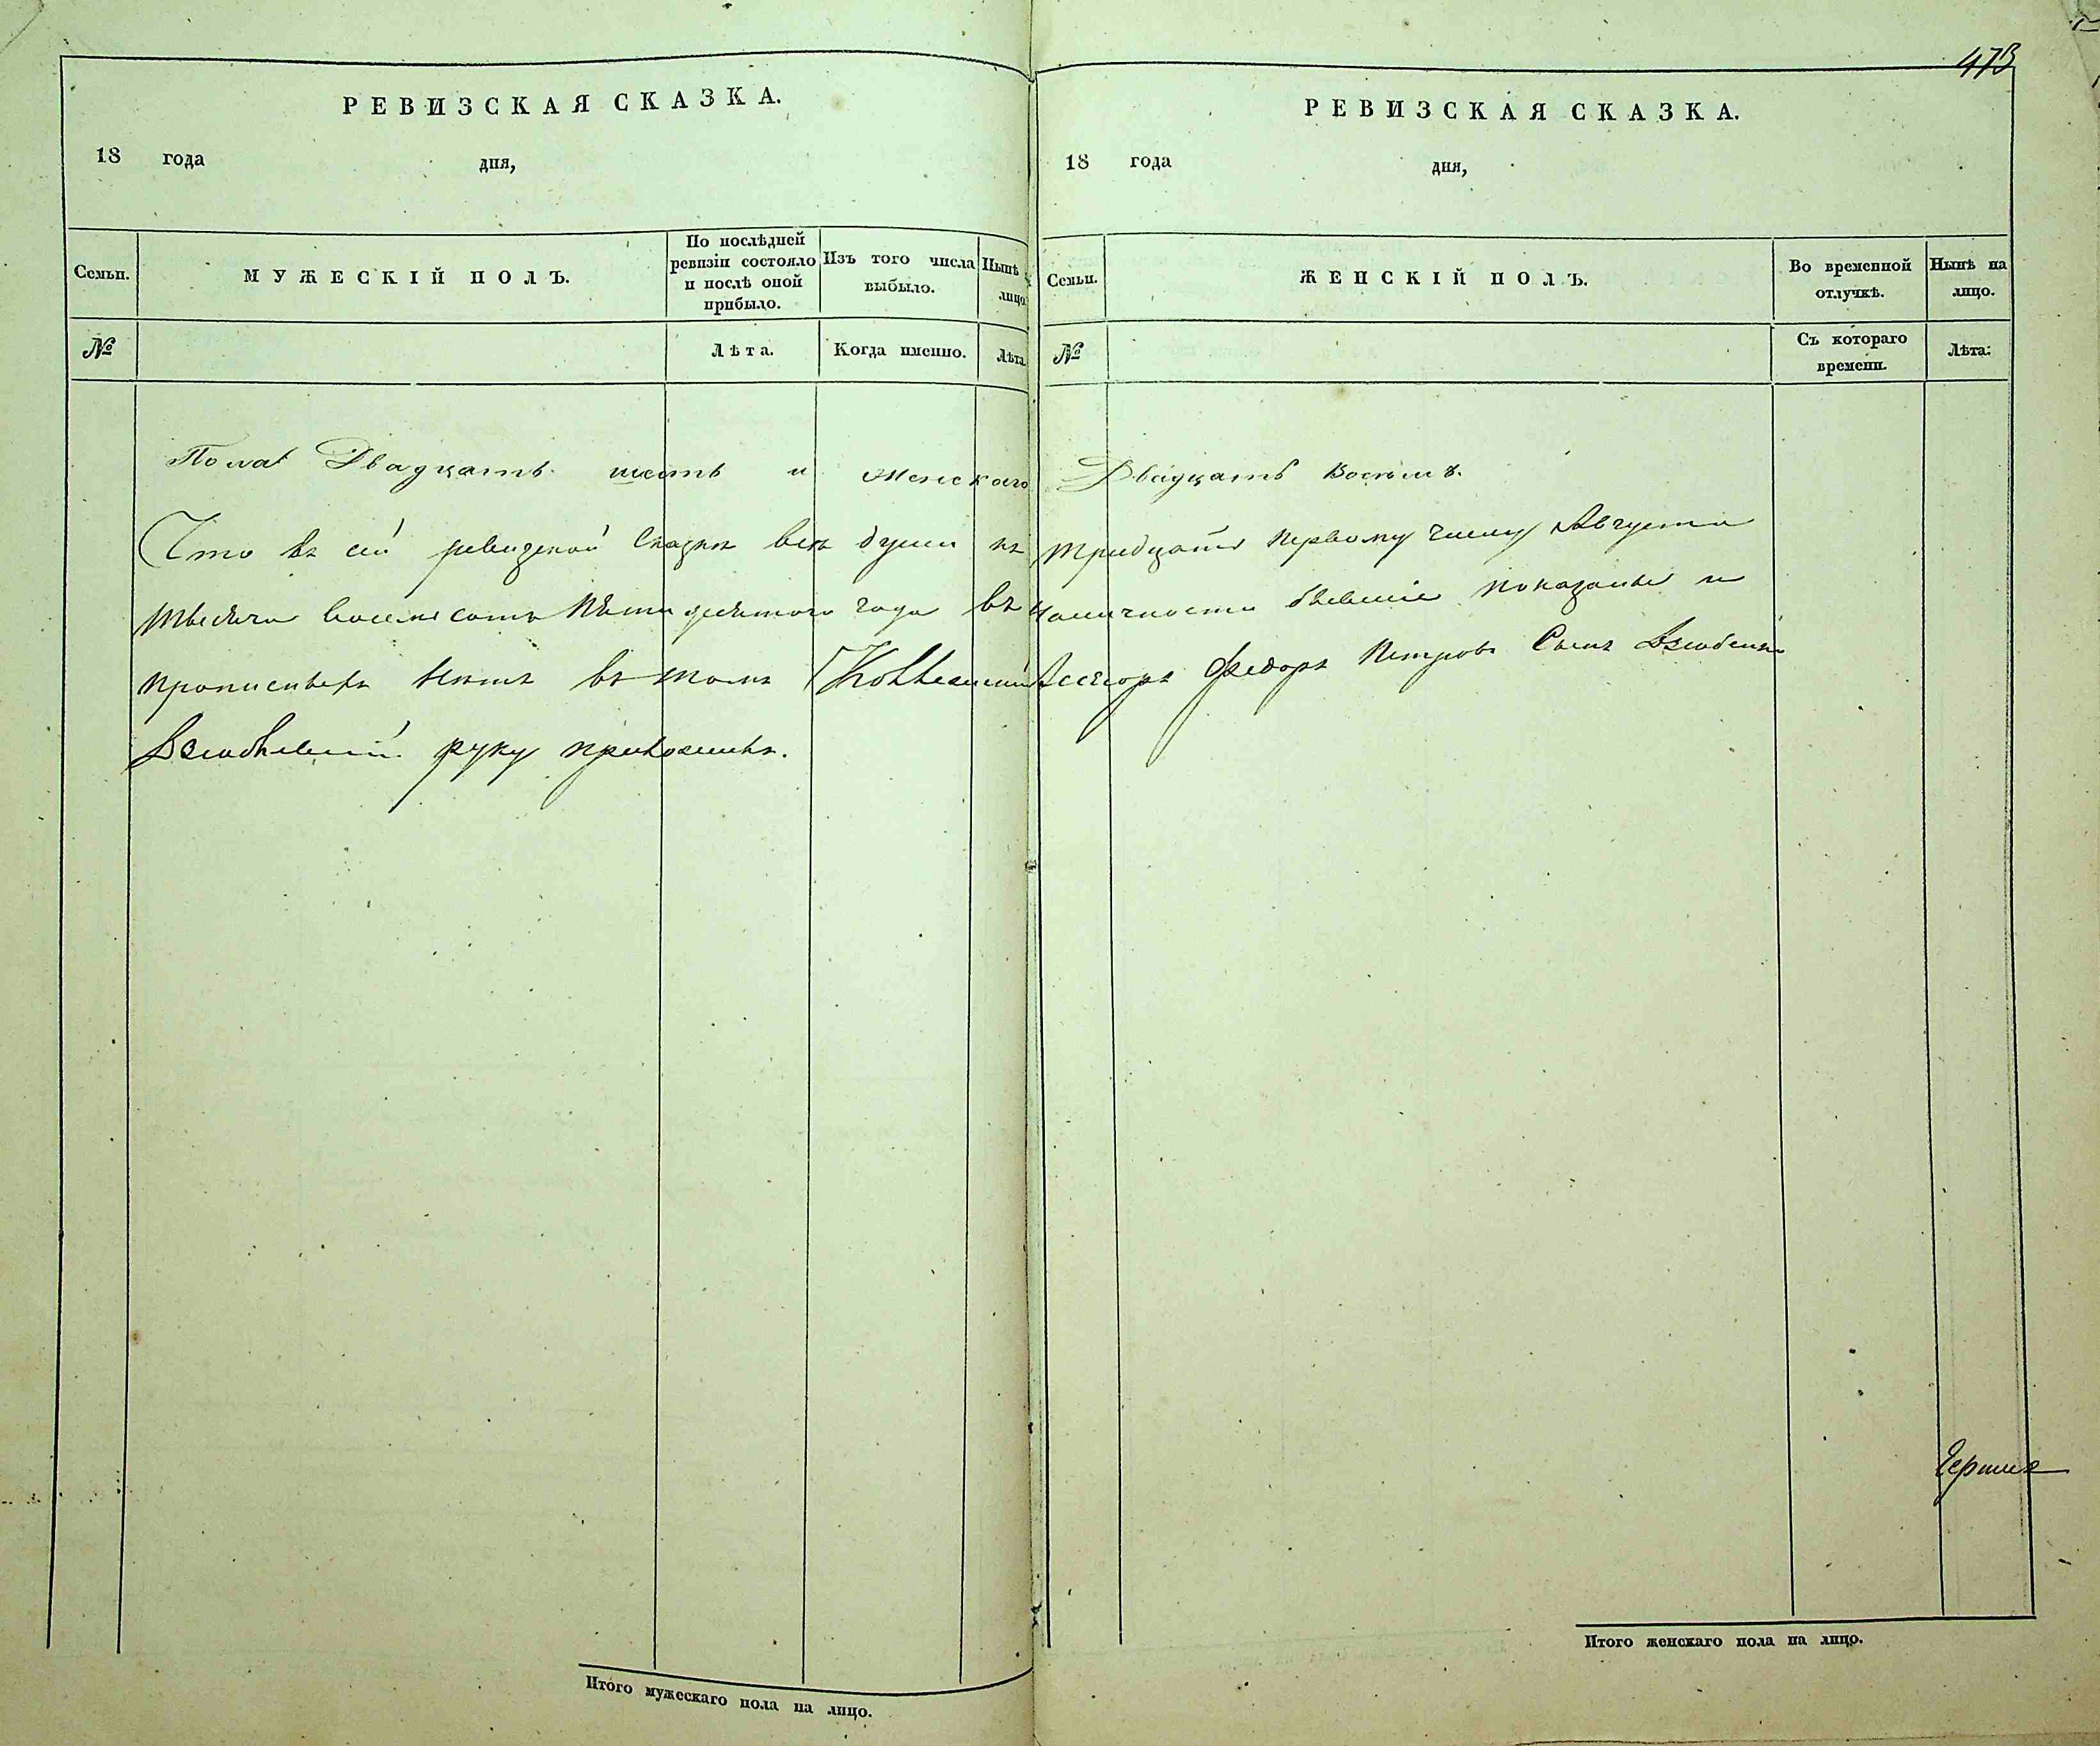 473
РЕВИЗСКАЯ СКАЗКА.
18 года дня,
Семьи. МУЖЕСКІЙ ПОЛЪ. По послѣдней ревизіи состояло и послѣ оной прибыло. Изъ того числа выбыло. Нынѣ лицо
№ Лѣта. Когда именно. Лѣта
РЕВИЗСКАЯ СКАЗКА.
18 года дня,
Семьи. ЖЕНСКІЙ ПОЛЪ. Во временной отлучкѣ. Нынѣ на лицо.
№ Съ котораго времени. Лѣта:
Пола Двадцать шесть и Женскаго Двадцать Восемь.
Что въ сей ревизской Сказки всѣ души къ тридцать первому числу Августа
тысяча восемь сотъ пятидесятого года въ наличности бывшіе показаны и
прописныхъ нѣтъ въ томъ Коллежскій Асесоръ Федоръ Петровъ Сынъ
руку приложилъ.
Итого мужескаго пола на лицо.
Итого женскаго пола на лицо.